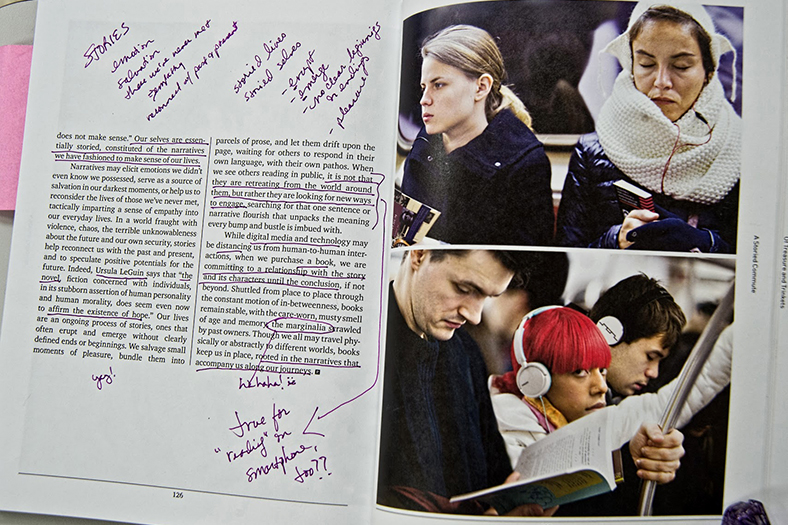 STORIES
emotion
salvation
those we've never met
empathy
reconnect of past & present
storied lives
storied selves
- erupt
- emerge
- no clear beginnings
or endings
- pleasure
does not make sense." Our selves are essen-
tially storied, constituted of the narratives
we have fashioned to make sense of our lives.
Narratives may elicit emotions we didn't
even know we possessed, serve as a source of
salvation in our darkest moments, or help us
reconsider the lives of those we've never met,
tactically imparting a sense of empathy into
our everyday lives. In a world fraught with
violence, chaos, the terrible unknowability
about the future and our own security, stories
help reconnect us with the past and present,
and to speculate positive potentials for the
future. Indeed, Ursula LeGuin says that "the
novel, fiction concerned with individuals,
in its stubborn assertion of human personality
and human morality, does seem even now
to affirm the existence of hope." Our lives
are an ongoing process of stories, ones that
often erupt and emerge without clearly
defined ends or beginnings. We salvage small
moments of pleasure, bundle them into
yes!
parcels of prose, and let them drift upon the
page, waiting for others to respond in their
own language, with their own pathos. When
we see others reading in public, it is not that
they are retreating from the world around
them, but rather they are looking for new ways
to engage, searching for that one sentence or
narrative flourish that unpacks the meaning
every bump and bustle is imbued with.
While digital media and technology may
be distancing us from human-to-human inter-
actions, when we purchase a book, we are
committing to a relationship with the story
and its characters until the conclusion, if not
beyond. Shuttled from place to place through
the constant motion of in-betweenness, books
remain stable, with the care-worn, musty smell
of age and memory, the marginalia scrawled
by past owners. Though we all may travel phy-
sically or abstractly to different worlds, books
keep us in place, rooted in the narratives that
accompany us along our journeys.
true for
"reading" on
smartphone,
too??
126
A Storied Commute
Of Treasure and Trinkets